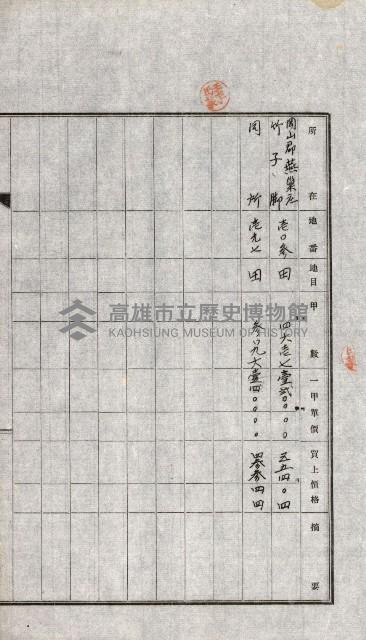 所在 地番 地目 甲數 一甲單價 買上價格 摘要
岡山郡燕巢庄
竹子脚 壱〇参 田 四六壱七 壹弍〇〇〇〇 五五四〇四
同所 壱九七 田 参〇九六 壹四〇〇〇〇 四参参四四
高雄市立歷史博物館
KAOHSIUNG MUSEUM OF HISTORY